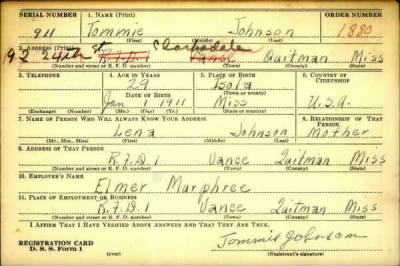 SERIAL NUMBER 1. NAME (Print) ORDER NUMBER
911 Tommie Johnson 1880
(First) (Middle) (Last)
2. ADDRESS (Print)
92 24th St Clarksdale
R.F.D.1 Vance Quitman Miss
(Number and street or R. F. D. number) (Town) (County) (State)
3. TELEPHONE 4. AGE IN YEARS 5. PLACE OF BIRTH 6. COUNTRY OF CITIZENSHIP
29 Isola
DATE OF BIRTH (Town or county)
Jan 1 1911 Miss U.S.A.
(Exchange) (Number) (Mo.) (Day) (Yr.) (State or country)
7. NAME OF PERSON WHO WILL ALWAYS KNOW YOUR ADDRESS 8. RELATIONSHIP OF THAT PERSON
Lena Johnson Mother
(Mr., Mrs., Miss) (First) (Middle) (Last)
9. ADDRESS OF THAT PERSON
R.F.D.1 Vance Quitman Miss
(Number and street or R. F. D. number) (Town) (County) (State)
10. EMPLOYER'S NAME
Elmer Murphree
11. PLACE OF EMPLOYMENT OR BUSINESS
R.F.D.1 Vance Quitman Miss
(Number and street or R. F. D. number) (Town) (County) (State)
I AFFIRM THAT I HAVE VERIFIED ABOVE ANSWERS AND THAT THEY ARE TRUE.
REGISTRATION CARD
D. S. S. Form 1
Tommie Johnson